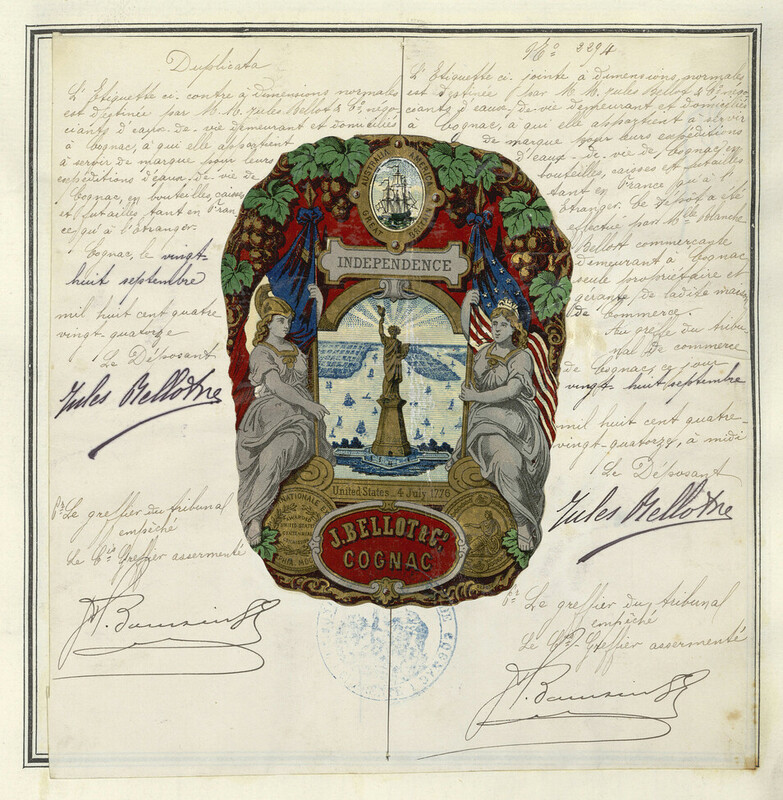 Duplicata
L'Etiquette ci-contre à dimensions normales
est destinée par M.M. Jules Bellot & Cie négo-
ciants d'eaux-de-vie demeurant et domiciliés
à Cognac, à qui elle appartient
à servir de marque pour leurs
expéditions d'eaux-de-vie de
Cognac, en bouteilles, caisses
et futailles tant en Fran-
ce qu'à l'étranger.
Cognac, le vingt-
huit septembre
mil huit cent quatre
vingt-quatorze
Le Déposant
Jules Bellot
Pr Le greffier du tribunal
empêché
Le Cis Greffier assermenté
No 3294
L'Etiquette ci-jointe à dimensions normales
est destinée par M.M. Jules Bellot & Cie négo-
ciants d'eaux-de-vie demeurant et domiciliés
à Cognac, à qui elle appartient à servir
de marque pour leurs expéditions
d'eaux-de-vie de Cognac, en
bouteilles, caisses et futailles
tant en France qu'à l'
Etranger. Ce dépôt a été
effectué par Mlle Blanche
Bellot commerçante
demeurant à Cognac
seule propriétaire et
gérante de ladite maison
de commerce.
Au greffe du tribu-
nal de commerce
de Cognac, ce jour
vingt huit septembre
mil huit cent quatre-
vingt-quatorze, à midi
Le Déposant
Jules Bellot
Pr Le greffier du tribunal
empêché
Le Cis Greffier assermenté
AUSTRALIA AMERICA
GREAT BRITAIN
INDEPENDENCE
United States 4 July 1776
J. BELLOT & Co
COGNAC
DE COGNAC